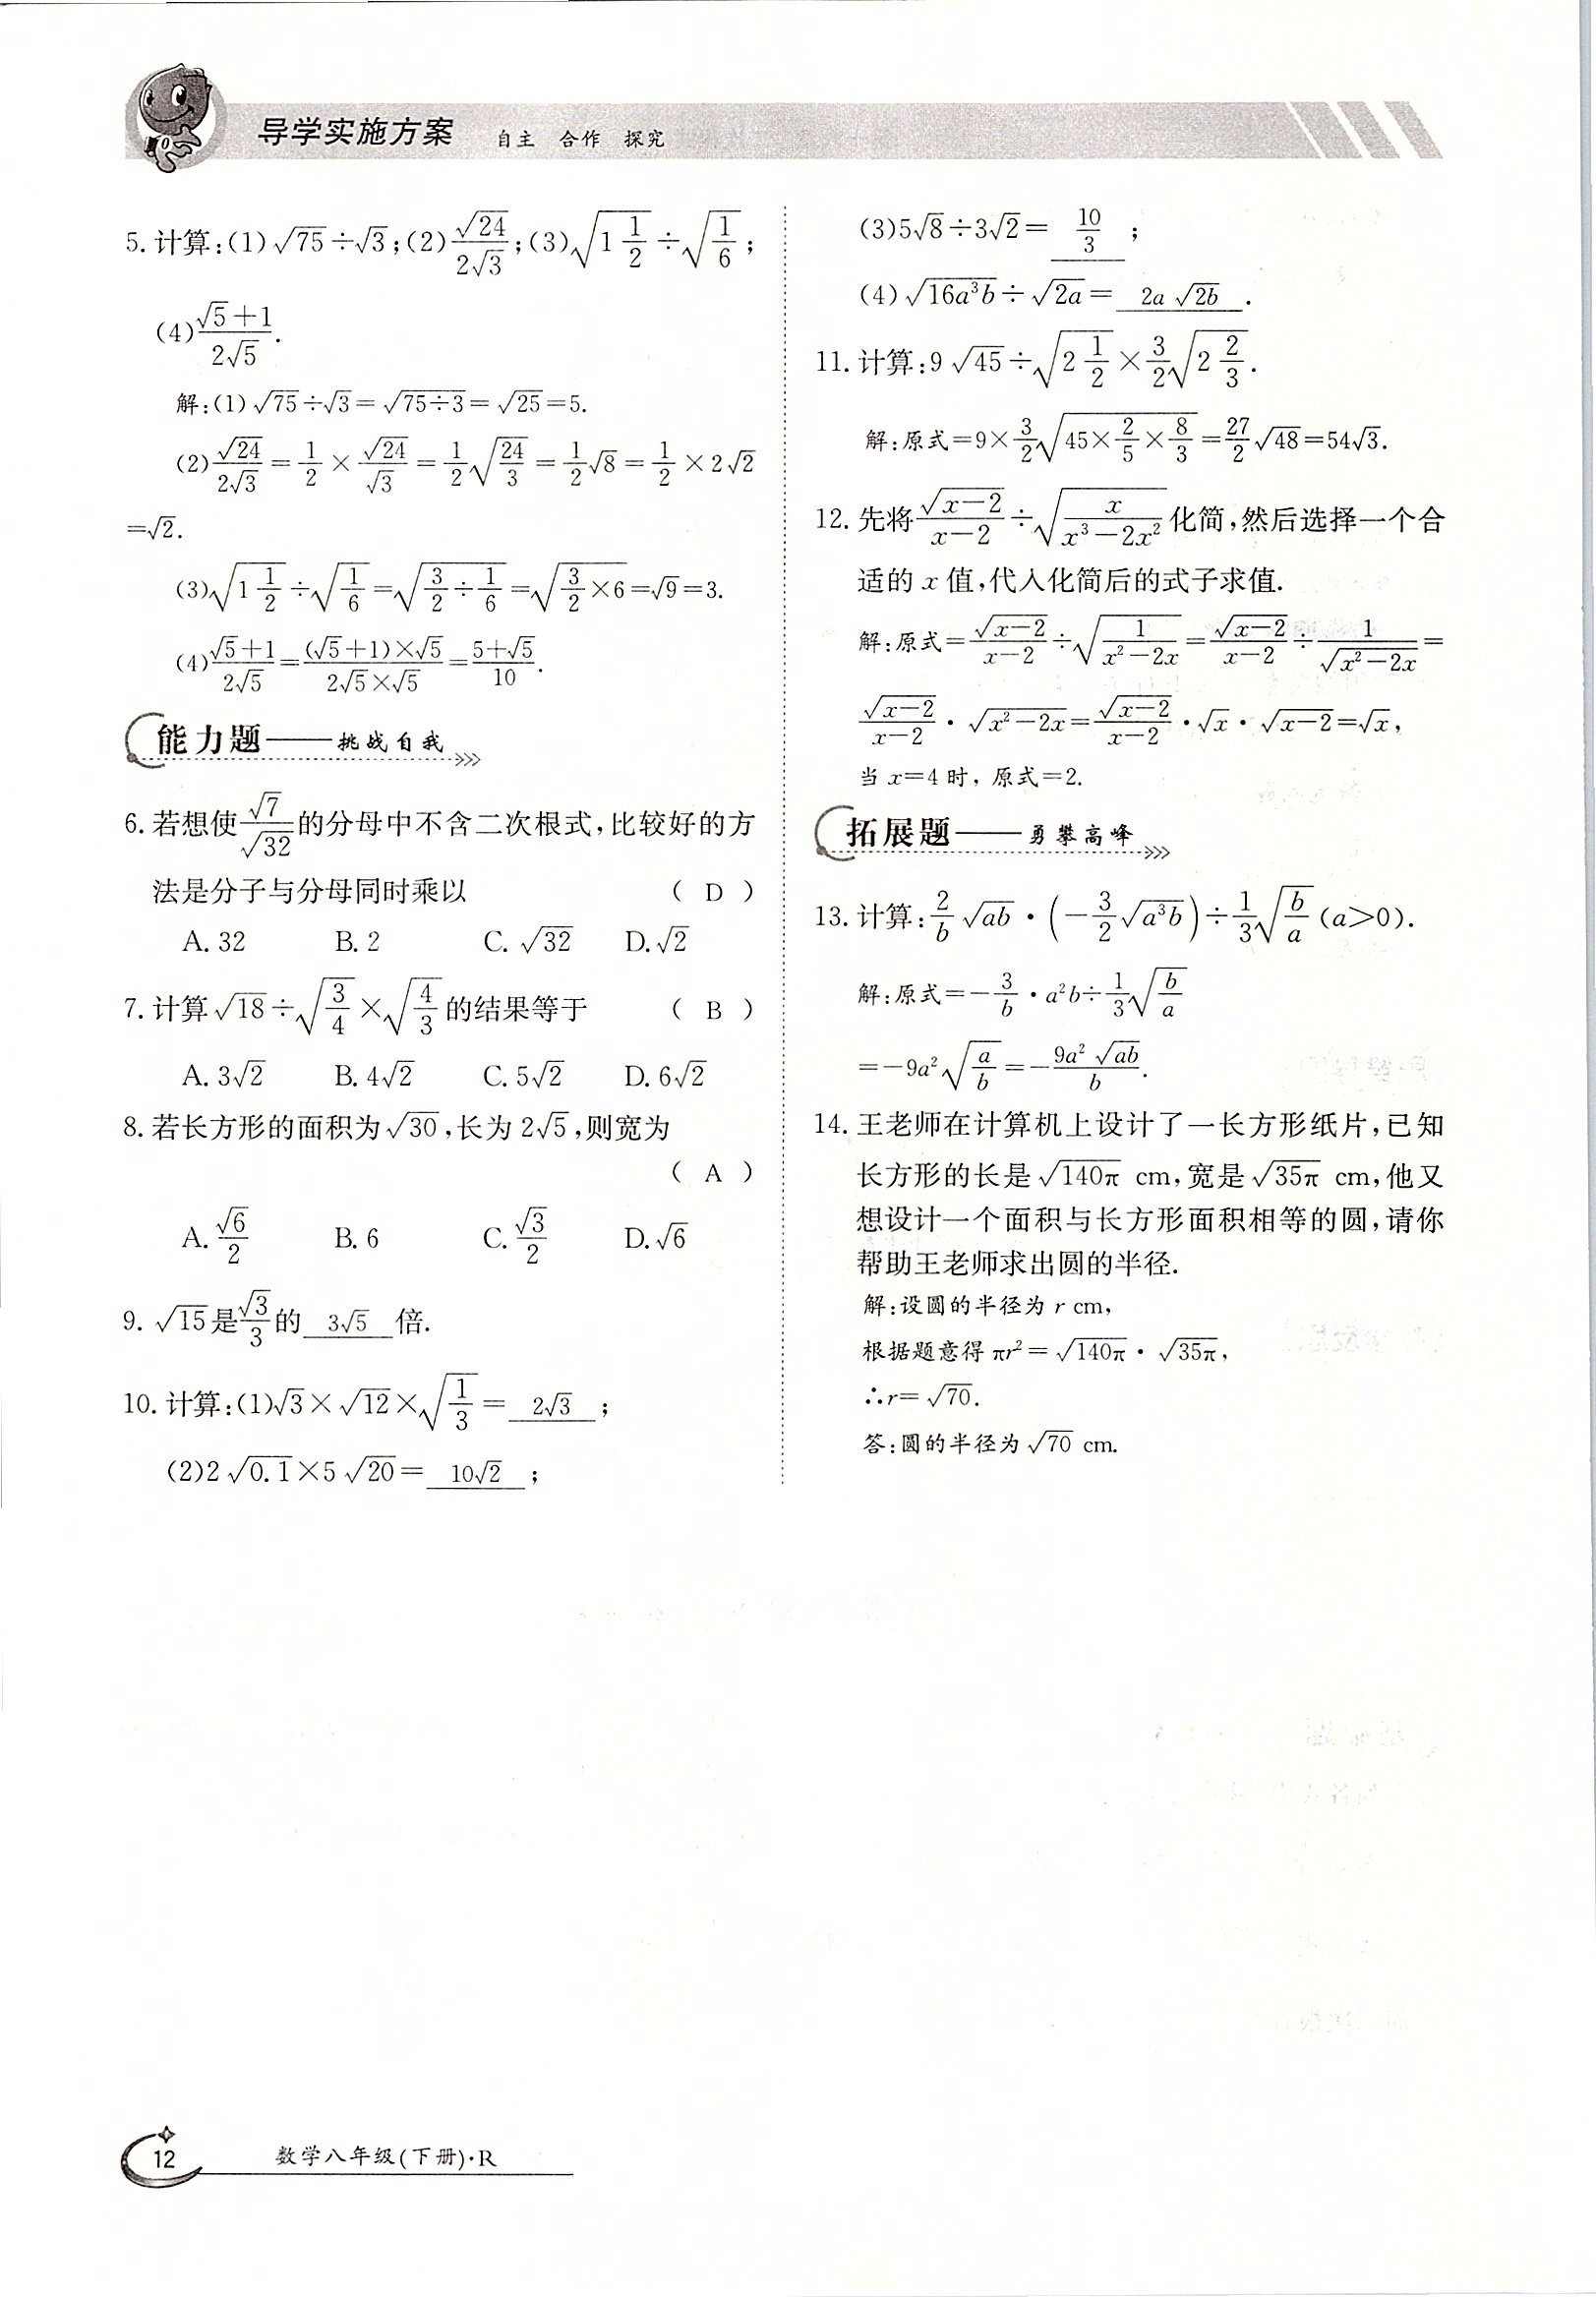 导学实施方案 自主 合作 探究
5. 计算:(1)√75÷√3;(2)√24/(2√3);(3)√(1 1/2)÷√(1/6);
(4)(√5+1)/(2√5).
解:(1)√75÷√3=√(75÷3)=√25=5.
(2)√24/(2√3)=1/2×√24/√3=1/2√(24/3)=1/2√8=1/2×2√2
=√2.
(3)√(1 1/2)÷√(1/6)=√(3/2÷1/6)=√(3/2×6)=√9=3.
(4)(√5+1)/(2√5)=((√5+1)×√5)/(2√5×√5)=(5+√5)/10.
能力题——挑战自我
6. 若想使√7/√32的分母中不含二次根式,比较好的方
法是分子与分母同时乘以 ( D )
A. 32 B. 2 C. √32 D. √2
7. 计算√18÷√(3/4)×√(4/3)的结果等于 ( B )
A. 3√2 B. 4√2 C. 5√2 D. 6√2
8. 若长方形的面积为√30,长为2√5,则宽为
( A )
A. √6/2 B. 6 C. √3/2 D. √6
9. √15是√3/3的 3√5 倍.
10. 计算:(1)√3×√12×√(1/3)= 2√3 ;
(2)2√0.1×5√20= 10√2 ;
(3)5√8÷3√2= 10/3 ;
(4)√(16a³b)÷√(2a)= 2a√(2b) .
11. 计算:9√45÷√(2 1/2)×3/2√(2 2/3).
解:原式=9×3/2√(45×2/5×8/3)=27/2√48=54√3.
12. 先将√(x-2)/(x-2)÷√(x/(x³-2x²))化简,然后选择一个合
适的x值,代入化简后的式子求值.
解:原式=√(x-2)/(x-2)÷√(1/(x²-2x))=√(x-2)/(x-2)÷1/√(x²-2x)=
√(x-2)/(x-2)·√(x²-2x)=√(x-2)/(x-2)·√x·√(x-2)=√x,
当x=4时,原式=2.
拓展题——勇攀高峰
13. 计算:2/b√(ab)·(-3/2√(a³b))÷1/3√(b/a)(a>0).
解:原式=-3/b·a²b÷1/3√(b/a)
=-9a²√(a/b)=-9a²√(ab)/b.
14. 王老师在计算机上设计了一长方形纸片,已知
长方形的长是√(140π) cm,宽是√(35π) cm,他又
想设计一个面积与长方形面积相等的圆,请你
帮助王老师求出圆的半径.
解:设圆的半径为r cm,
根据题意得πr²=√(140π)·√(35π),
∴r=√70.
答:圆的半径为√70 cm.
12 数学八年级(下册)·R